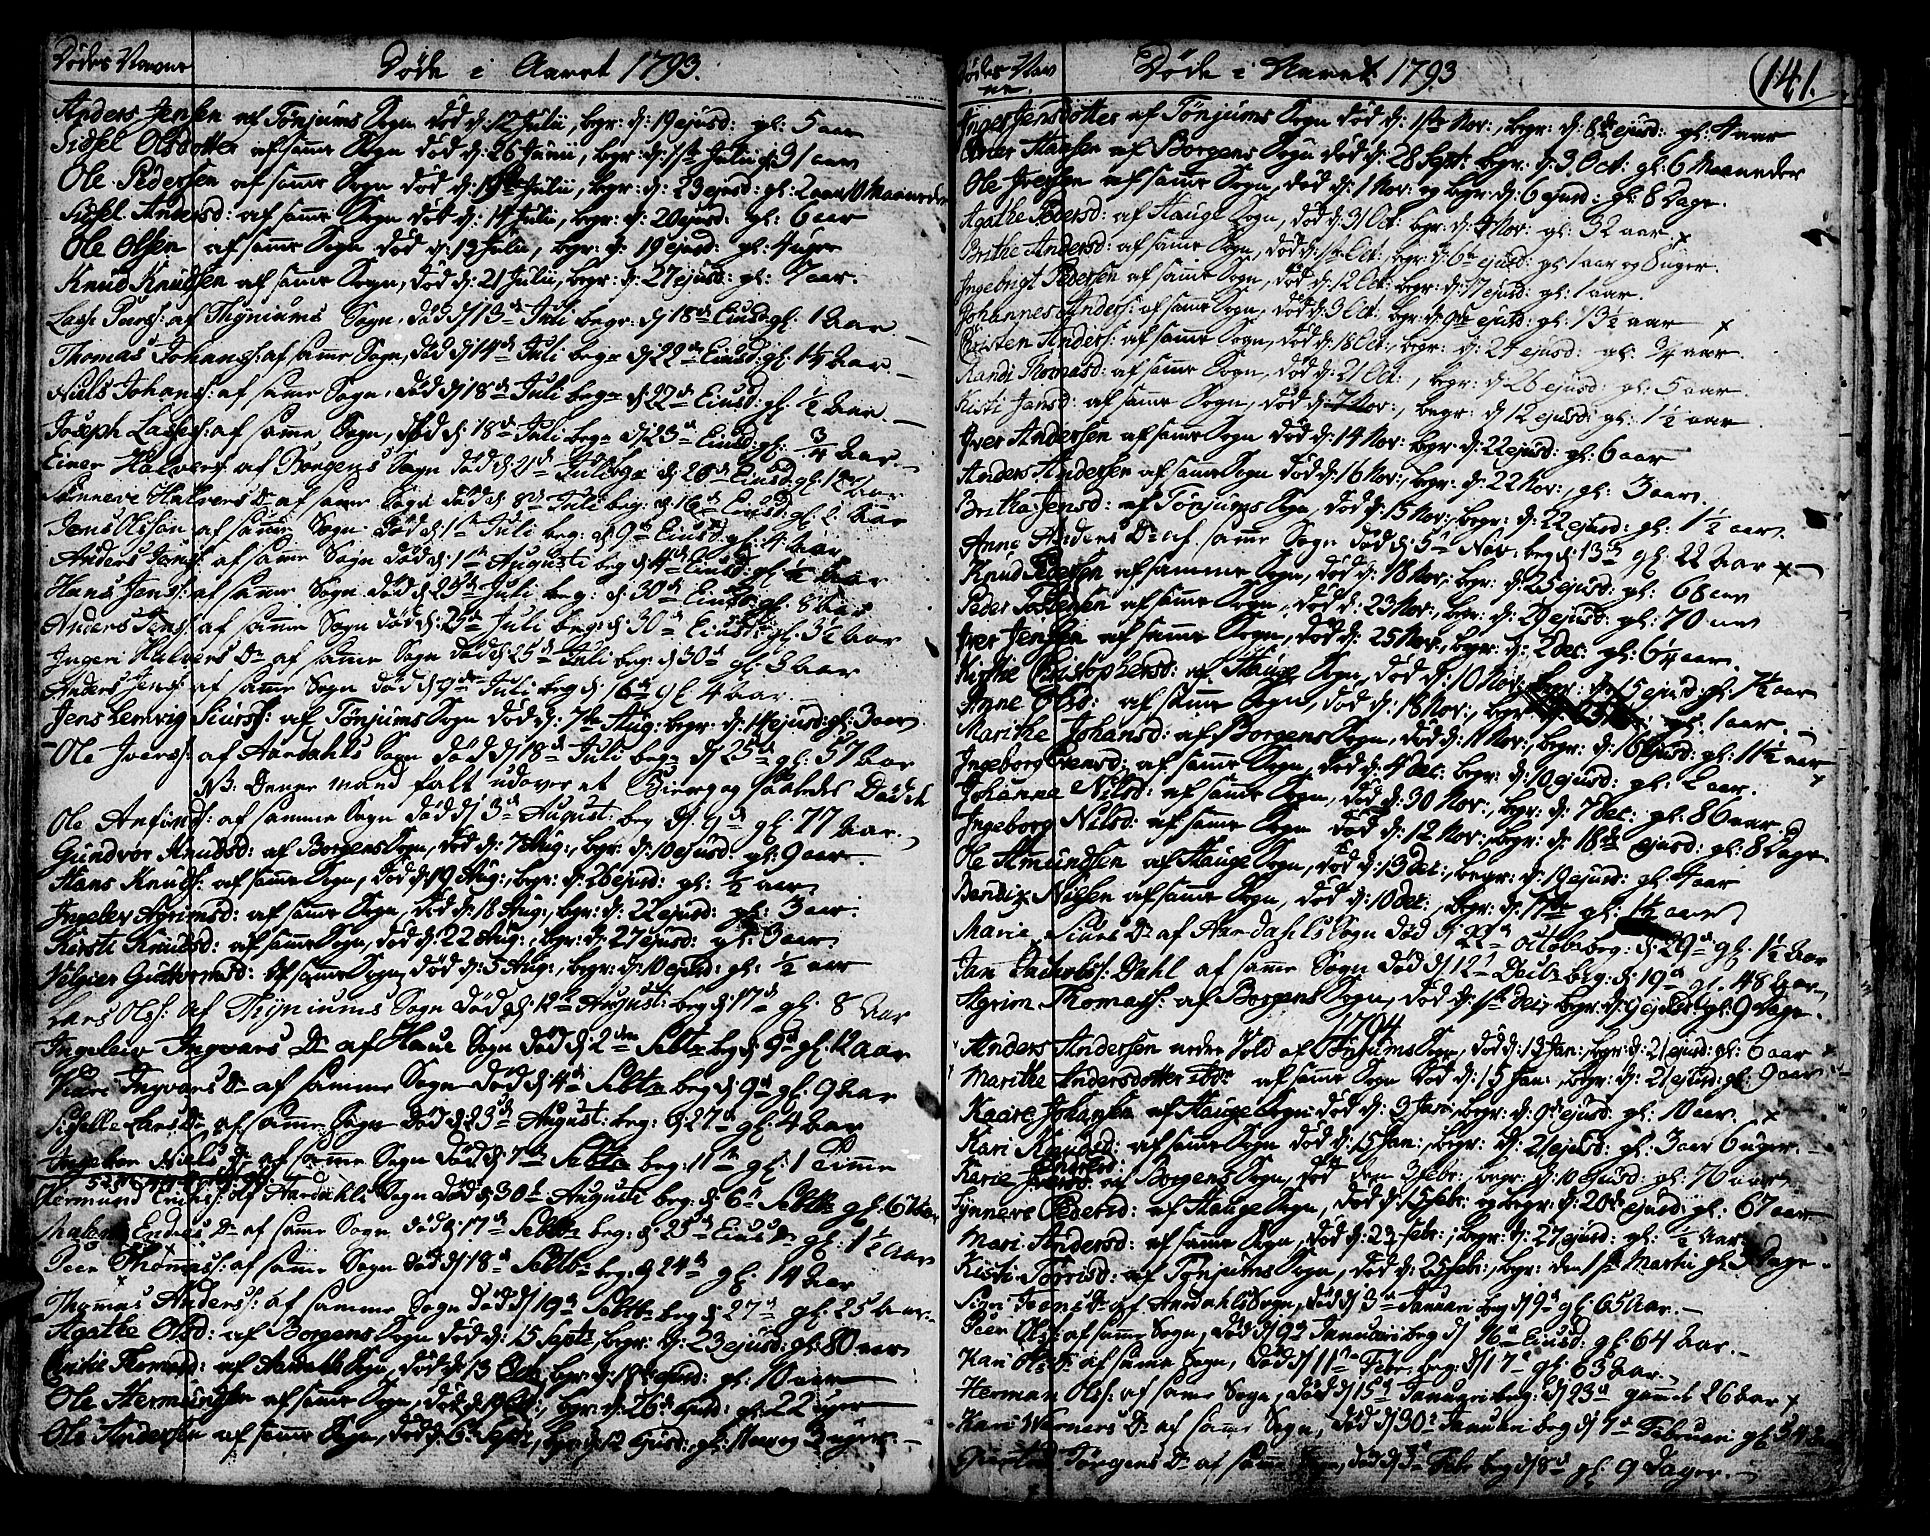 Dødes Navne
Døde i Aaret 1793.
Anders Jensen af Tønjums Sogn død d: 12 Julii, begr: d: 19 ejusd: gl: 5 aar
Sidsel Olsdotter af samme Sogn død d: 26 Junii, begr: d: 1ste Julii gl: 31 aar
Ole Pedersen af samme Sogn død d: Julii, begr: d: 23 ejusd: gl: 2 aar 10 Maaneder
Sidsel Andersd: af samme Sogn død d: 14 Julii, begr: d: 20 ejusd: gl: 6 aar
Ole Olsen af samme Sogn død d: 13 Julii, begr: d: 19 ejusd: gl: 4 uger
Knud Knudsen af samme Sogn, død d: 21 Julii, begr: d: 27 ejusd: gl: 4 aar.
Lasse Siurs: af Thyniums Sogn, død d 13de Juli begr: d 18de Eiusd: gl: 1 Aar
Thomas Johans: af samme Sogn, død d 14de Juli begr d 22de Eiusd: gl: 1 1/4 Aar
Niels Johans: af samme Sogn, død d 18de Juli begr d 22de Eiusd: gl: 1/2 Aar
Joseph Lasses: af samme Sogn, død d: 18de Juli begr d 23de Eiusd: gl: 3/4 Aar
Einer Halvors: af Borgens Sogn død d 21de Juli begr d: 26de Eiusd: gl: 12 Aar
Sønneve Halvors Dr af samme Sogn død d 8de Juli beg: d 16de Eiusd: gl: 2 Aar
Jens Olsson af samme Sogn død d 1ste Juli beg: d 9de Eiusd: gl: 4 Aar
Anders Jens: af samme Sogn død d 1ste Augusti beg d 4de Eiusd: gl: 1/2 Aar
Hans Jens: af samme Sogn død d 25de Juli beg: d 30de Eiusd: gl: 8 Aar
Anders Jens: af samme Sogn død d: 25de Juli beg: d 30de Eiusd: gl: 3 1/2 Aar
Ingeri Halvors Dr af samme Sogn død d 25de Juli beg d 30de gl: 8 Aar
Anders Jens: af samme Sogn død d 9de Juli beg d: 16de gl: 4 Aar
Jens Lemvig Siurs: af Tønjums Sogn død d: 7de Aug: begr: d: 14 ejusd: gl: 3 aar
Ole Ivers: af Aardahls Sogn død d 18de Juli begr d 25de gl: 57 Aar
NB. Denne mand falt udover et Bierg og saaledes Døde
Ole Anfins: af samme Sogn død d 3de August: beg d: 9de gl: 77 Aar.
Gundvor Knudsd: af Borgens Sogn, død d: 7 Aug:, begr: d: 10 ejusd: gl: 9 aar
Hans Knuds: af samme Sogn, død d: 19 Aug:, begr: d: 26 ejusd: gl: 1/2 aar
Ingelev Agrimsd: af samme Sogn, død d: 18 Aug:, begr: d: 22 ejusd: gl: 3 aar.
Kersti Knudsd: af samme Sogn, død d: 22 Aug:, begr: d: 27 ejusd: gl: 3 aar
Helgier Guttormsd: af samme Sogn, død d: 5 Aug:, begr: d: 10 ejusd: gl: 1/2 aar
Lars Ols: af Thyniums Sogn død d 12te August: beg d 17de gl: 8 Aar
Ingeleiv Ingvars Dr af Haue Sogn død d: 2den Septbr beg d 9de gl: 12 Aar
Kari Ingvars Dr af samme Sogn død d: 4de Septbr beg d 9de gl: 9 Aar
Sidselle Lars Dr af samme Sogn død d 23de August: beg: d 27de gl: 4 Aar
Ingebor Niels Dr af samme Sogn død d 7de Septbr beg: 11te gl: 1 Time
Hermund Erichs: af Aardahls Sogn død d: 30te Augusti beg: d 6te Septbr gl: 67 Aar
Endres Dr af samme Sogn død d: 17de Septbr beg: d 25de Eiusd gl: 1 1/2 Aar
Peer Thomas: af samme Sogn død d 18de Septbr beg: d 24de gl: 14 Aar
Thomas Anders: af samme Sogn død d 19de Septbr beg d 27de gl: 25 Aar
Agathe Olsd: af Borgens Sogn død d: 15 Septr, begr: d: 23 ejusd: gl: 80 aar
Thomasd: af Aardahls Sogn, død d: 13 Octr, begr: d: ejusd: gl: 10 aar
Ole Hermundsen af samme Sogn, død d: Oct:, begr: d: 26de ejusd: gl: 22 uger
Ole Andersen af samme Sogn, død d: 6te Septr, begr: d: 12 Ejusd: gl: 3 uger
Dødes Navne.
Døde i Aaret 1793
141.
Inger Jensdotter af Tønjums Sogn død d: 1ste Nov:, begr: d: 8de ejusd: gl: 4 aar
Hansen af Borgens Sogn død d: 28 Sept: begr: d: 3 Oct: gl: 6 Maaneder
Ole Iversen af samme Sogn, død d: 1 Nov: og begr: d: 6 ejusd: gl: 8 Dage.
Agathe Pedersd: af Hauge Sogn, død d: 31 Oct: begr: d: 4 Nov: gl: 32 aar x
Brithe Andersd: af samme Sogn, død d: 1ste Oct: begr: d: 6te ejusd: gl: 1 aar og 8 uger.
Ingebrigt Pedersen af samme Sogn, død d: 12 Oct: begr: d: 17 ejusd: gl: 1 aar.
Johannes Anders: af samme Sogn, død d: 3 Oct: begr: d: 9de ejusd: gl: 13 1/2 aar x
Christen Anders: af samme Sogn, død d: 18 Oct:, begr: d: 24 ejusd: gl: 3/4 aar.
Randi Thomasd: af samme Sogn, død d: 21 Oct:, begr: d: 26 ejusd: gl: 5 aar
Kisti Jensd: af samme Sogn, død d: 7 Nov:, begr: d 12 ejusd: gl: 1 1/2 aar
Iver Andersen af samme Sogn død d: 14 Nov: begr: d: 22 ejusd: gl: 6 aar
Anders Andersen af samme Sogn død d: 16 Nov:, begr: d: 22 Nov:, gl: 3 aar.
Britha Jensd: af Tønjums Sogn, død d: 15 Nov:, begr: d: 22 ejusd: gl: 1 1/2 aar.
Anne Anders Dr af samme Sogn død d: 5te Nov: beg d: 13de gl: 22 Aar x
Knud Pedersen af samme Sogn, død d: 18 Nov:, begr: d: 25 ejusd: gl: 68 aar
Peder Jostensen af samme Sogn, død d: 23 Nov:, begr: d: 29 ejusd: gl: 70 aar
Iver Jensen af samme Sogn, død d: 25 Nov:, begr: d: 2 Dec: gl: 6 1/4 aar.
Kisthe Christophersd: af Hauge Sogn, død d: 10 Nov:, begr: d: 15 ejusd: gl: 7 1/2 aar
Anne Olsd: af samme Sogn, død d: 18 Nov:, begr: gl: 1 aar.
Marithe Johansd: af Borgens Sogn, død d: 11 Nov:, begr: d: 16 Ejusd: gl: 11 1/2 aar
Ingeborg Evensd: af samme Sogn, død d: 4 Dec: begr: d: 10 ejusd: gl: 2 aar. x
Johanne Nilsd: af samme Sogn, død d: 30 Nov:, begr: d: 7 Dec: gl: 86 aar.
Ingeborg Nilsd: af samme Sogn død d: 12 Nov:, begr: d: 18de ejusd: gl: 8 Dage.
Ole Amundsen af Hauge Sogn, død d: 13 Dec:, begr: d: 19 ejusd: gl: 4 aar
Bendix Nilsen af samme Sogn, død d: 10 Dec:, begr: d: 17de gl: 1 1/2 aar
Marie Siurs Dr af Aardahls Sogn død d 22de Octobr beg: d: 29de gl: 1 1/2 Aar
Jan Jachobs: Dahl af samme Sogn død d 12te Decbr beg: d 19de gl: 48 Aar
Agrim Thomas: af Borgens Sogn, død d: 1ste Dec:, begr: d: 9 ejusd: gl: 9 Dage.
1794
Anders Andersen nedre Vold af Tønjums Sogn, død d: 13 Jan:, begr: d: 21 ejusd: gl: 6 aar x
Marithe Andersdotter ibd: af samme Sogn død d: 15 Jan:, begr: d: 21 ejusd: gl: 9 aar
Kaare Johansen af Hauge Sogn død d: 3 Jan:, begr: d: 9de ejusd: gl: 10 aar. x
Kari Knudsd: af samme Sogn død d: 15 Jan:, begr: d: 21 ejusd: gl: 3 aar 6 uger.
Karie af Borgens Sogn, død den 3 febr:, begr: d: 10 ejusd: gl: 70 aar
Synneve Pedersd: af Hauge Sogn, død d: 15 febr: og begr: d: 20de ejusd: gl: 67 aar
Mari Andersd: af samme Sogn, død d: 23 febr:, begr: d: 27 ejusd: gl: 1/2 Aar
Kisti Torrisd: af Tønjums Sogn, død d: 25 febr:, begr: den 1ste Martii gl: 3 Dage
Siri Joens Dr af Aardahls Sogn, død d 3de Januari beg d 9de gl: 65 Aar.
Peer Ols: af samme Sogn, død d 9de Januari beg d 16de Eiusd: gl: 64 Aar.
Kari Ols Dr af samme Sogn, død d 11te Febr: beg: d 17 gl: 63 Aar.
Herman Ols: af samme Sogn, død d 15de Januari beg: d 23de gammel 26 Aar x
Kari Warners Dr af samme Sogn, død d 30te Januari beg d 7de Februari gl: 34
Jørgens Dr af samme Sogn, død d 3de Febr beg d 8de gl: 9 Dager.